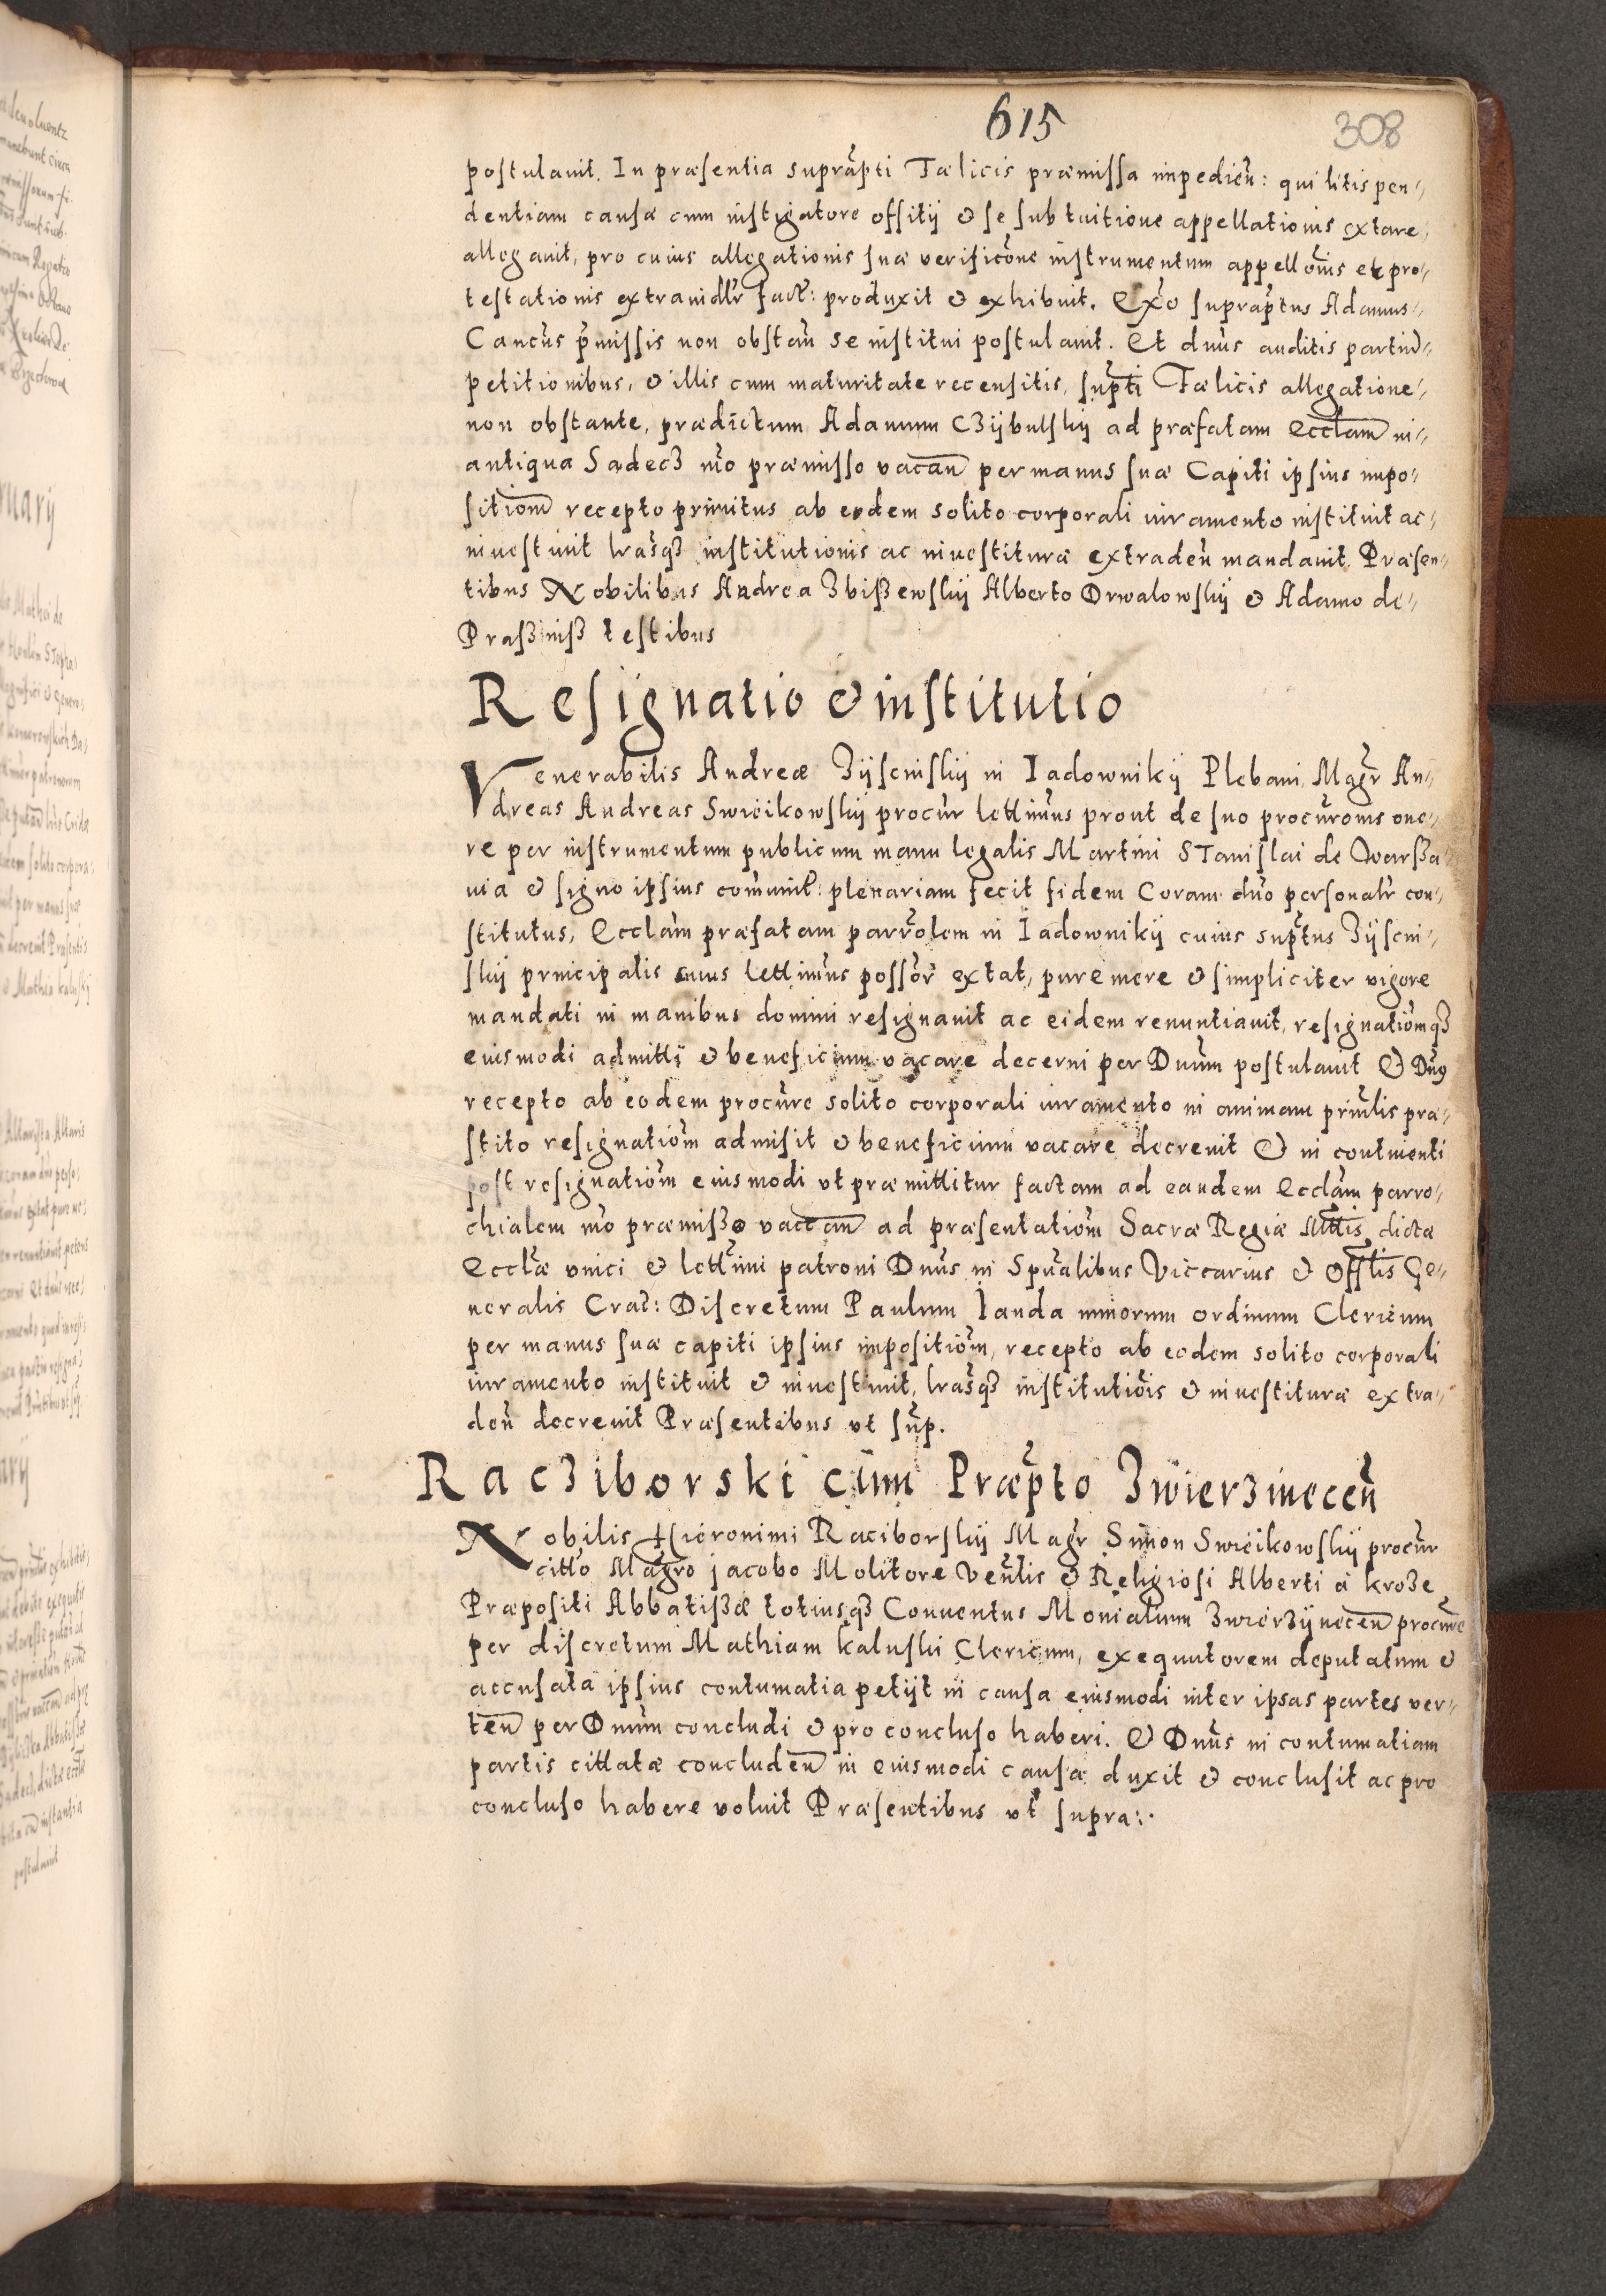 615
308
postulauit. In præsentia suprapti Fælicis præmissa impedien: qui litispen-
dentiam causæ cum instigatore offitij & se sub tuitione appellationis extare
allegauit, pro cuius allegationis suæ verificone instrumentum appellonis et pro-
testationis extraiudlr fact: produxit & exhibuit. Exo supraptus Adamus
Cancus pmissis non obstan se institui postulauit. Et dnus auditis partiu
petitionibus, & illis cum maturitate recensitis, supti Fælicis allegatione
non obstante, prædictum Adamum Czijbulskij ad præfatam Ecclam in
antiqua Sadecz mo præmisso vacan per manus suæ Capiti ipsius impo-
sitiom recepto primitus ab eodem solito corporali iuramento instituit ac
inuestiuit lrasqz institutionis ac inuestituræ extraden mandauit Præsen-
tibus Nobilibus Andrea Zbißewskij Alberto Orwalowskij & Adamo de
Praßniß testibus
Resignatio & institutio
Venerabilis Andreæ Zijscinskij in Iadownikij Plebani Magr An-
dreas Andreas Swieikowskij procur lettimus prout de suo procuronis one-
re per instrumentum publicum manu legalis Martini Stanislai de Warßa
uia & signo ipsius comunit: plenariam fecit fidem Coram dno personalr con-
stitutus, Ecclam præfatam parrolem in Iadownikij cuius suptus Zijscin-
skij principalis cuius lettimus possor extat, pure mere & simpliciter vigore
mandati in manibus domini resignauit ac eidem renuntiauit, resignatiomqz
eiusmodi admitti & beneficium vacare decerni per Dnum postulauit Et Dnus
recepto ab eodem procure solito corporali iuramento in animam prinlis præ-
stito resignatiom admisit & beneficium vacare decreuit Et in continenti
post resignatiom eiusmodi vt præmittitur factam ad eandem Ecclam parro-
chialem mo præmißo vaccan ad præsentatiom Sacræ Regiæ Mttis dictæ
Ecclæ vnici & lettimi patroni Dnus in Spualibus Viccarius & Offlis Ge-
neralis Crac: Discretum Paulum Ianda minorum ordinum Clericum
per manus suæ capiti ipsius impositiom, recepto ab eodem solito corporali
iuramento instituit & inuestiuit, lrasqz institutiois & inuestituræ extra-
den decreuit Præsentibus vt sup.
Racziborski cum Præpto Zwierzinecen
Nobilis Hieronimi Raciborskij Magr Simon Swieikowskij procur
citto Magro jacobo Molitore Venlis & Religiosi Alberti a kroze
Præpositi Abbatißæ totiusqz Conuentus Monialium Zwierzijnecen procure
per discretum Mathiam kaluski Clericum, exequutorem deputatum &
accusata ipsius contumatia petijt in causa eiusmodi inter ipsas partes ver-
ten per Dnum concludi & pro concluso haberi. Et Dnus in contumatiam
partis cittatæ concluden in eiusmodi causa duxit & conclusit ac pro
concluso habere voluit Præsentibus vt supra:.